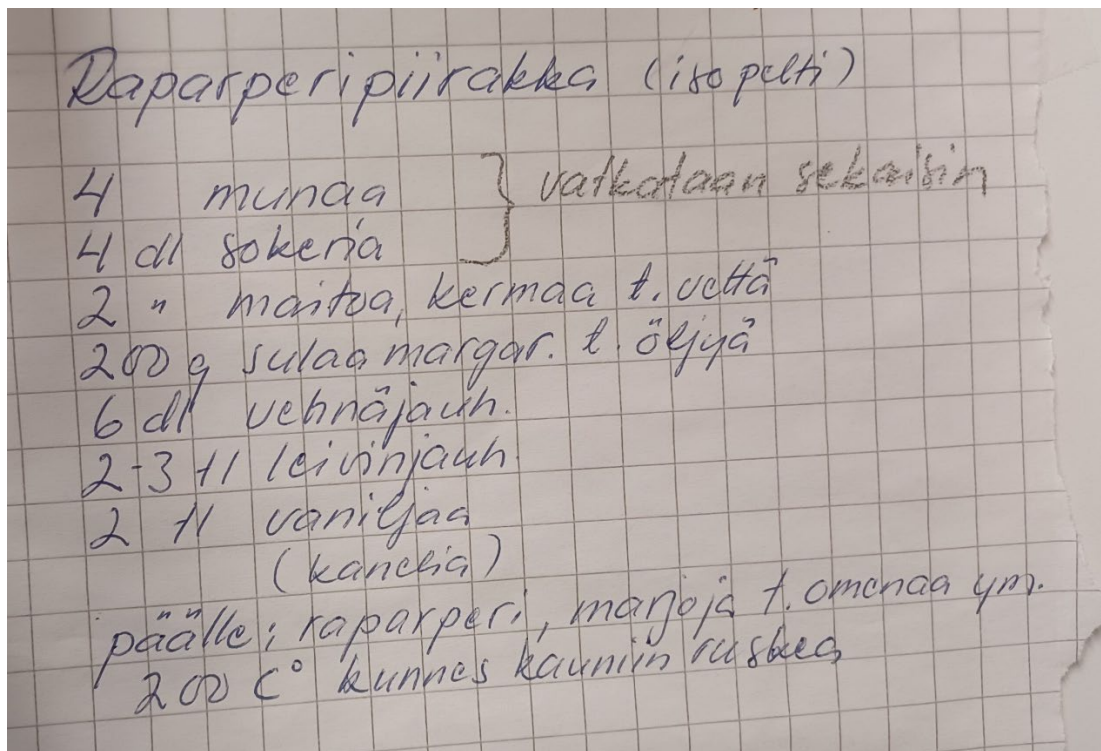 Raparperipiirakka (iso pelti)
4 munaa } vatkataan sekaisin
4 dl sokeria
2 " maitoa, kermaa t. vettä
200 g sulaa margar. t. öljyä
6 dl vehnäjauh.
2-3 tl leivinjauh.
2 tl vaniljaa
(kanelia)
päälle; raparperi, marjoja t. omenaa ym.
200 C° kunnes kauniin ruskea